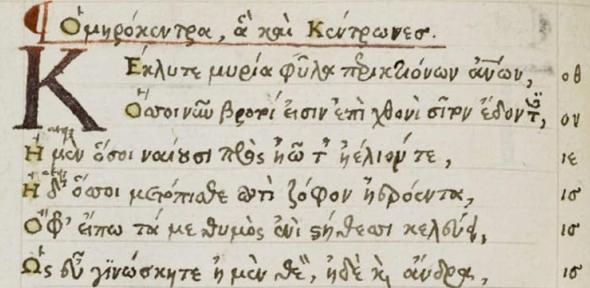 ¶ Ὁμηρόκεντρα, ἃ καὶ Κέντρωνες.
ΚΕκλυτε μυρία φῦλα περικτιόνων ἀν̅ων, οθ
Ὅσσοι νῦν βροτοί εἰσιν ἐπὶ χθονὶ σῖτον ἔδοντ̅, ον
Ἠ μὲν ὅσοι ναίουσι πρὸς ἠῶ τ' ἠέλιόν τε, ιε
Ἠ δ' ὅσσοι μετόπισθε ποτὶ ζόφον ἠερόεντα, ισ
Ὄφρ' εἴπω τά με θυμὸς ἐνὶ στήθεσσι κελεύει, ισ
Ὡς εὖ γινώσκητε ἠ μὲν θεὸν, ἠδὲ κὶ ἄνδρα, ισ